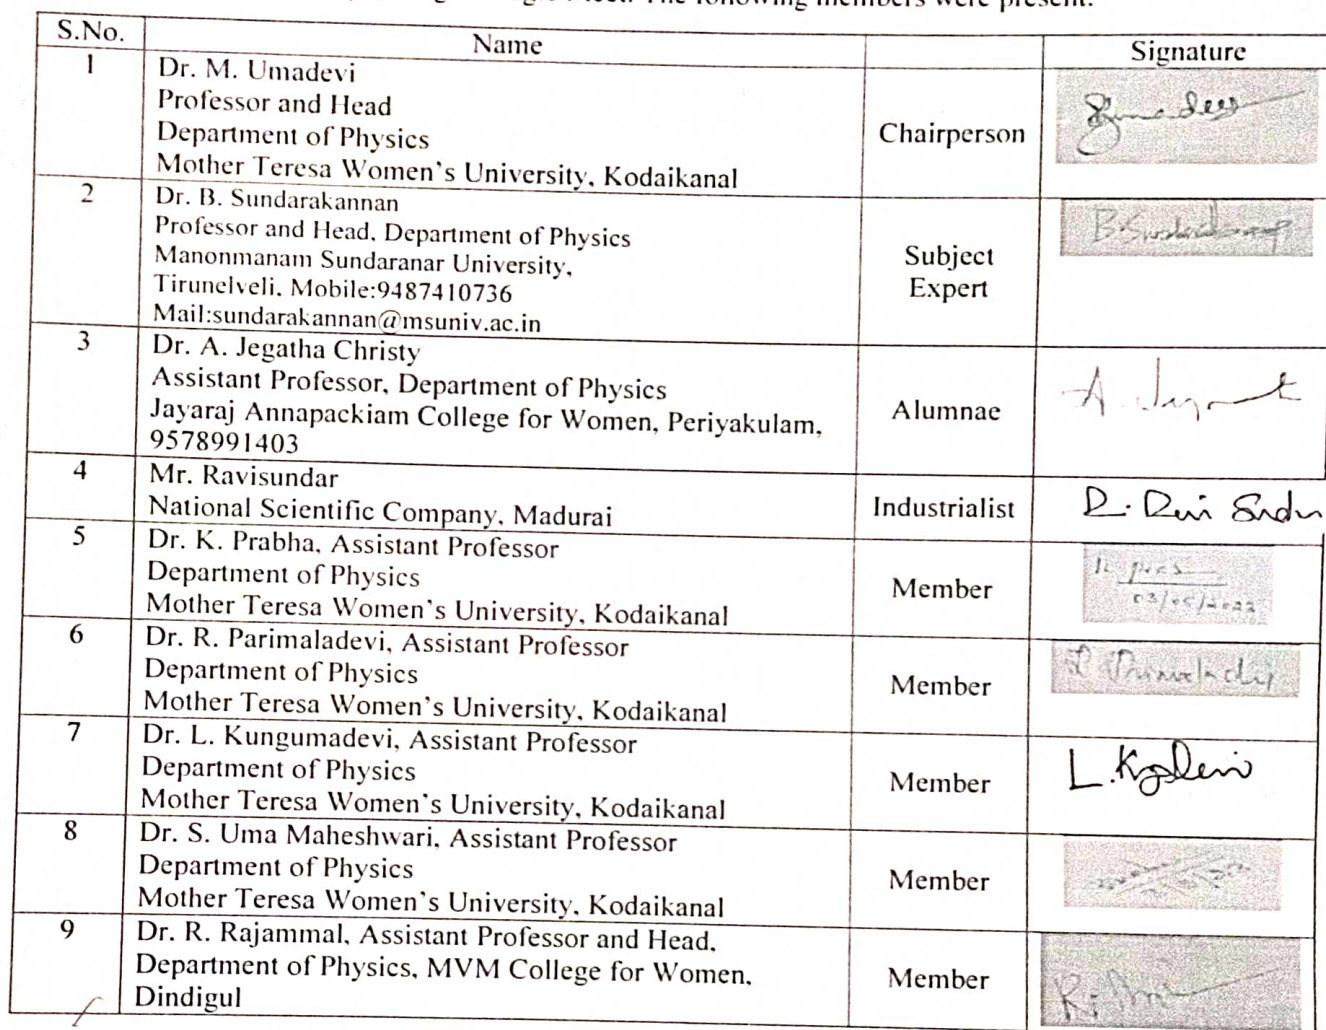 The following members were present:
S.No. Name Signature
1 Dr. M. Umadevi
Professor and Head
Department of Physics
Mother Teresa Women's University, Kodaikanal
Chairperson
2 Dr. B. Sundarakannan
Professor and Head, Department of Physics
Manonmanam Sundaranar University,
Tirunelveli. Mobile:9487410736
Mail:sundarakannan@msuniv.ac.in
Subject
Expert
3 Dr. A. Jegatha Christy
Assistant Professor, Department of Physics
Jayaraj Annapackiam College for Women, Periyakulam,
9578991403
Alumnae
4 Mr. Ravisundar
National Scientific Company, Madurai
Industrialist
5 Dr. K. Prabha, Assistant Professor
Department of Physics
Mother Teresa Women's University, Kodaikanal
Member
03/05/2022
6 Dr. R. Parimaladevi, Assistant Professor
Department of Physics
Mother Teresa Women's University, Kodaikanal
Member
7 Dr. L. Kungumadevi, Assistant Professor
Department of Physics
Mother Teresa Women's University, Kodaikanal
Member
8 Dr. S. Uma Maheshwari, Assistant Professor
Department of Physics
Mother Teresa Women's University, Kodaikanal
Member
9 Dr. R. Rajammal, Assistant Professor and Head,
Department of Physics, MVM College for Women,
Dindigul
Member